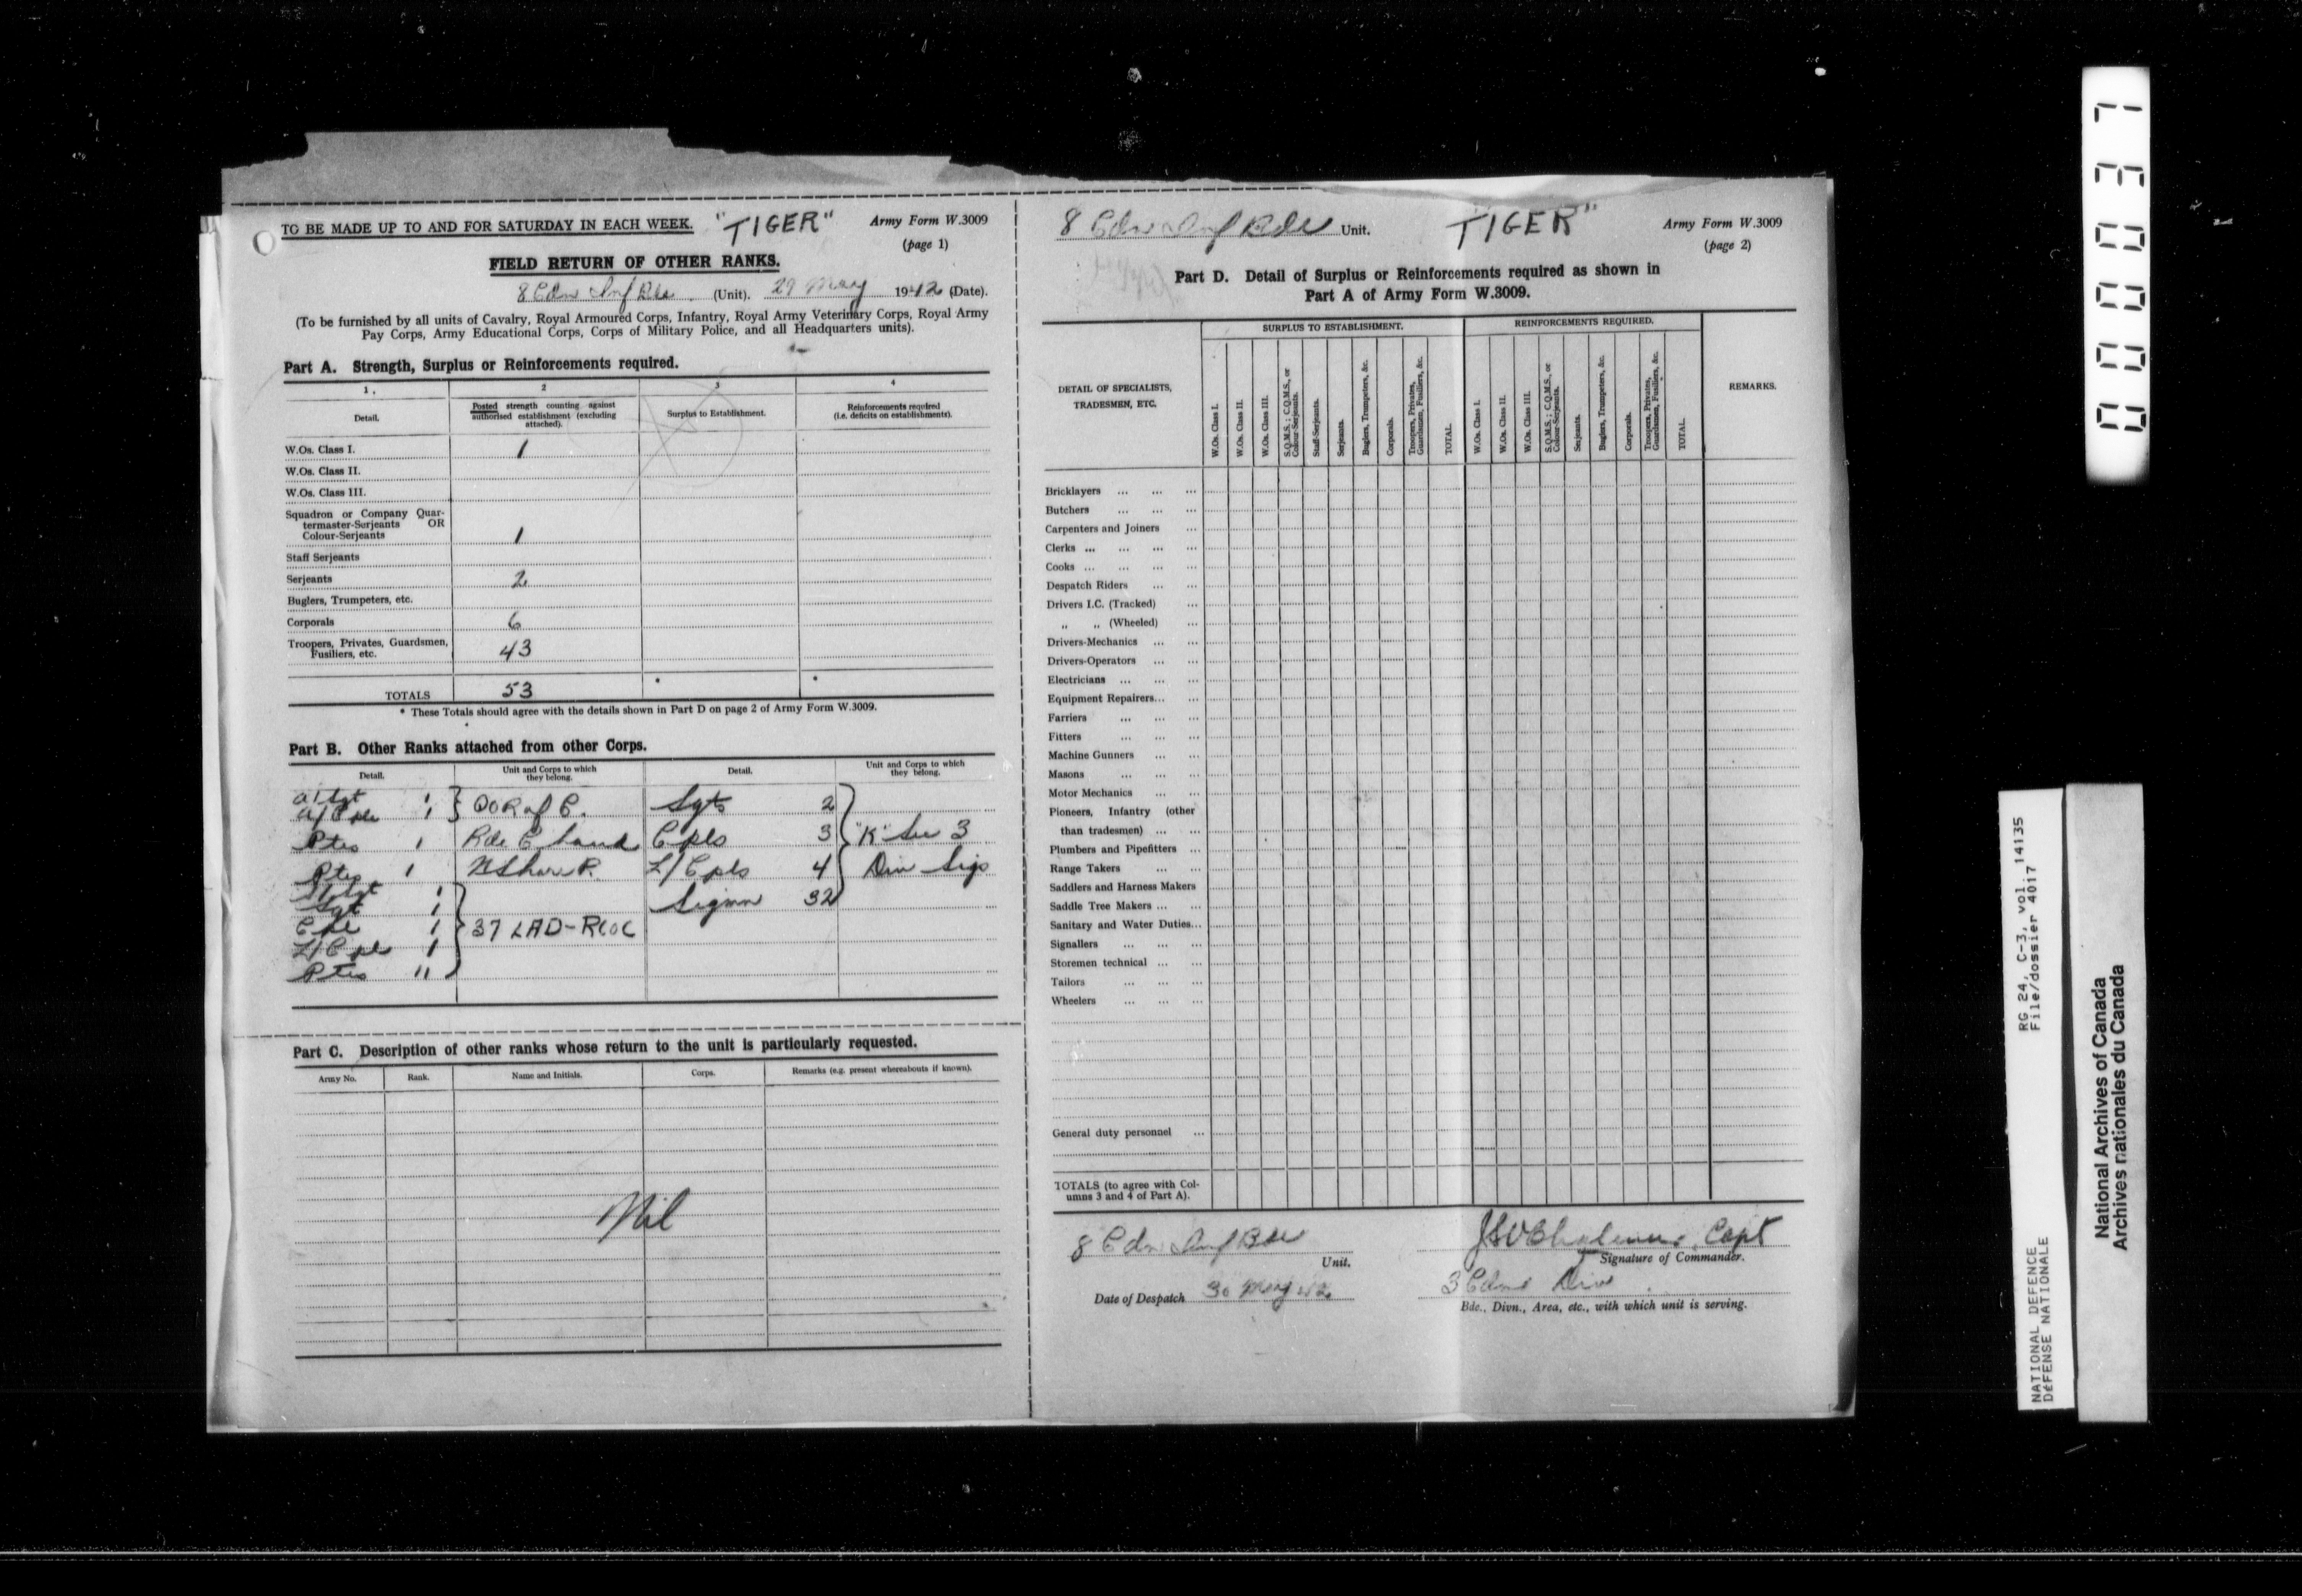 TO BE MADE UP TO AND FOR SATURDAY IN EACH WEEK. "TIGER" Army Form W.3009
(page 1)
FIELD RETURN OF OTHER RANKS.
8 Cdn Inf Bde (Unit). 29 May 1942 (Date).
(To be furnished by all units of Cavalry, Royal Armoured Corps, Infantry, Royal Army Veterinary Corps, Royal Army
Pay Corps, Army Educational Corps, Corps of Military Police, and all Headquarters units).
Part A. Strength, Surplus or Reinforcements required.
1. 2 3 4
Detail. Posted strength counting against authorised establishment (excluding attached). Surplus to Establishment. Reinforcements required (i.e. deficits on establishments).
W.Os. Class I. 1
W.Os. Class II.
W.Os. Class III.
Squadron or Company Quar-
termaster-Serjeants OR
Colour-Serjeants 1
Staff Serjeants
Serjeants 2
Buglers, Trumpeters, etc.
Corporals 6
Troopers, Privates, Guardsmen,
Fusiliers, etc. 43
TOTALS 53 * *
* These Totals should agree with the details shown in Part D on page 2 of Army Form W.3009.
Part B. Other Ranks attached from other Corps.
Detail. Unit and Corps to which they belong. Detail. Unit and Corps to which they belong.
A/Sgt 1 QOR of C. Sgts 2
A/Cpl 1
Ptes 1 Rde C Cpls 3 "K" Sec 3
Ptes 1 N Shore R. L/Cpls 4 Div Sigs
1
Sgt 1 Sigmn 32
Cpl 1 37 LAD-RCOC
L/Cpl 1
Ptes 11
Part C. Description of other ranks whose return to the unit is particularly requested.
Army No. Rank. Name and Initials. Corps. Remarks (e.g. present whereabouts if known).
Nil
8 Cdn Inf Bde Unit. TIGER" Army Form W.3009
(page 2)
Part D. Detail of Surplus or Reinforcements required as shown in
Part A of Army Form W.3009.
DETAIL OF SPECIALISTS, TRADESMEN, ETC. SURPLUS TO ESTABLISHMENT. REINFORCEMENTS REQUIRED. REMARKS.
W.Os. Class I.
W.Os. Class II.
W.Os. Class III.
S.Q.M.S.; C.Q.M.S., or Colour-Serjeants.
Staff-Serjeants.
Serjeants.
Buglers, Trumpeters, &c.
Corporals.
Troopers, Privates, Guardsmen, Fusiliers, &c.
TOTAL.
W.Os. Class I.
W.Os. Class II.
W.Os. Class III.
S.Q.M.S.; C.Q.M.S., or Colour-Serjeants.
Serjeants.
Buglers, Trumpeters, &c.
Corporals.
Troopers, Privates, Guardsmen, Fusiliers, &c.
TOTAL.
Bricklayers ... ... ...
Butchers ... ... ...
Carpenters and Joiners ...
Clerks ... ... ... ...
Cooks ... ... ... ...
Despatch Riders ... ...
Drivers I.C. (Tracked) ...
„ „ (Wheeled) ...
Drivers-Mechanics ... ...
Drivers-Operators ... ...
Electricians ... ... ...
Equipment Repairers... ...
Farriers ... ... ...
Fitters ... ... ...
Machine Gunners ... ...
Masons ... ... ...
Motor Mechanics ... ...
Pioneers, Infantry (other
than tradesmen) ... ...
Plumbers and Pipefitters ...
Range Takers ... ...
Saddlers and Harness Makers
Saddle Tree Makers ... ...
Sanitary and Water Duties...
Signallers ... ... ...
Storemen technical ... ...
Tailors ... ... ...
Wheelers ... ... ...
General duty personnel ...
TOTALS (to agree with Col-
umns 3 and 4 of Part A).
8 Cdn Inf Bde Unit.
Capt
Signature of Commander.
Date of Despatch 30 May 42
3 Cdn Div
Bde., Divn., Area, etc., with which unit is serving.
000037
NATIONAL DEFENCE RG 24, C-3, vol. 14135
DÉFENSE NATIONALE File/dossier 4017
National Archives of Canada
Archives nationales du Canada